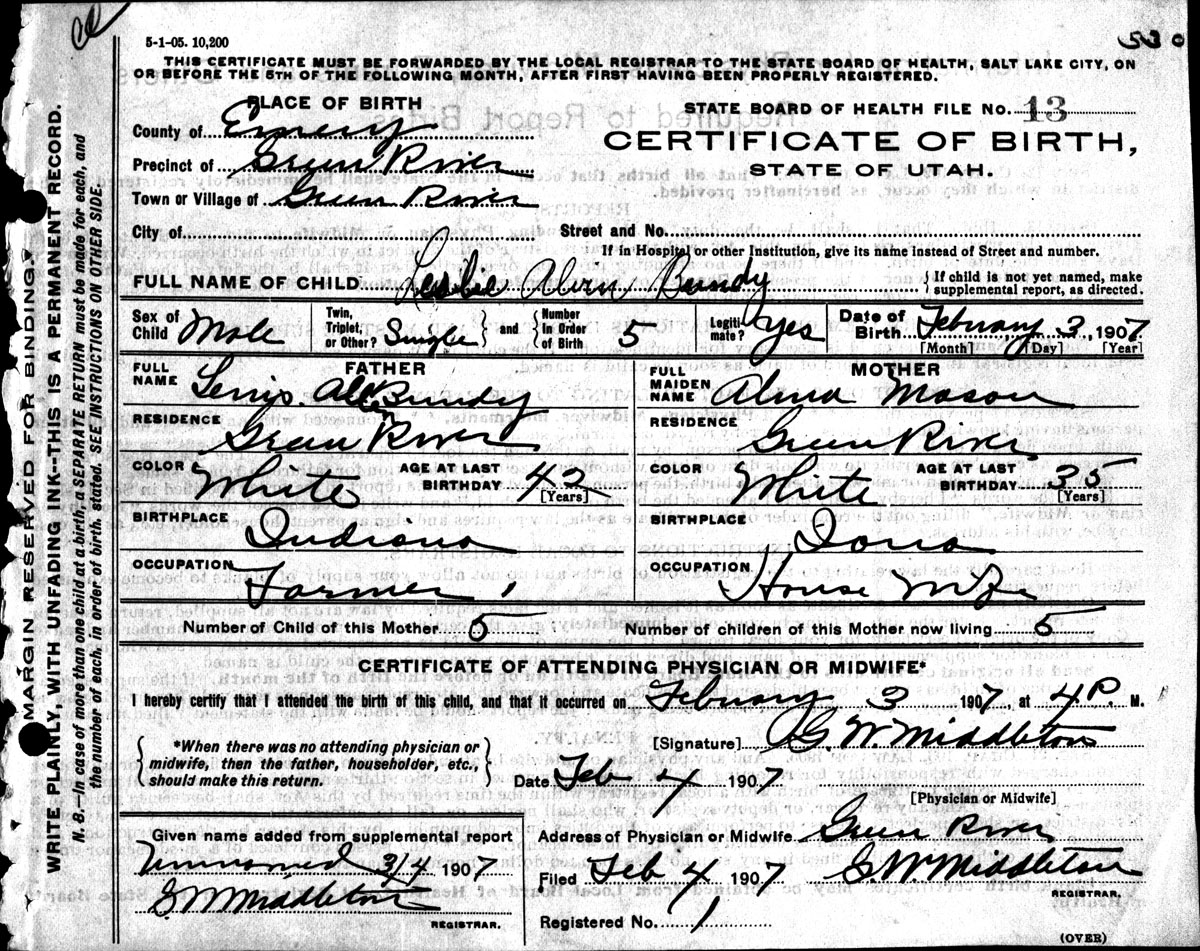 5-1-05. 10,200
THIS CERTIFICATE MUST BE FORWARDED BY THE LOCAL REGISTRAR TO THE STATE BOARD OF HEALTH, SALT LAKE CITY, ON
OR BEFORE THE 5TH OF THE FOLLOWING MONTH, AFTER FIRST HAVING BEEN PROPERLY REGISTERED.
PLACE OF BIRTH
STATE BOARD OF HEALTH FILE No. 13
County of Emery
CERTIFICATE OF BIRTH,
Precinct of Green River
STATE OF UTAH.
Town or Village of Green River
City of
Street and No.
If in Hospital or other Institution, give its name instead of Street and number.
FULL NAME OF CHILD Leslie Alvin Bundy
{If child is not yet named, make
supplemental report, as directed.
Sex of Child Male
Twin, Triplet, or Other? Single } and { Number In Order of Birth 5
Legitimate? yes
Date of Birth February 3 1907
[Month] [Day] [Year]
FATHER
FULL NAME Bundy
RESIDENCE Green River
COLOR White AGE AT LAST BIRTHDAY 42
[Years]
BIRTHPLACE Indiana
OCCUPATION Farmer
MOTHER
FULL MAIDEN NAME Alma Mason
RESIDENCE Green River
COLOR White AGE AT LAST BIRTHDAY 35
[Years]
BIRTHPLACE Iowa
OCCUPATION House Wife
Number of Child of this Mother 5 Number of children of this Mother now living 5
CERTIFICATE OF ATTENDING PHYSICIAN OR MIDWIFE*
I hereby certify that I attended the birth of this child, and that it occurred on February 3 1907, at 4 P. M.
{ *When there was no attending physician or
midwife, then the father, householder, etc.,
should make this return. }
[Signature] G. W. Middleton
Date Feb 4 1907
[Physician or Midwife]
Given name added from supplemental report
Unnamed 3/4 1907
G W Middleton
REGISTRAR.
Address of Physician or Midwife Green River
Filed Feb 4 1907 G W Middleton
REGISTRAR.
Registered No. 1
(OVER)
MARGIN RESERVED FOR BINDING.
WRITE PLAINLY, WITH UNFADING INK—THIS IS A PERMANENT RECORD.
N. B.—In case of more than one child at a birth, a SEPARATE RETURN must be made for each, and
the number of each, in order of birth, stated. SEE INSTRUCTIONS ON OTHER SIDE.